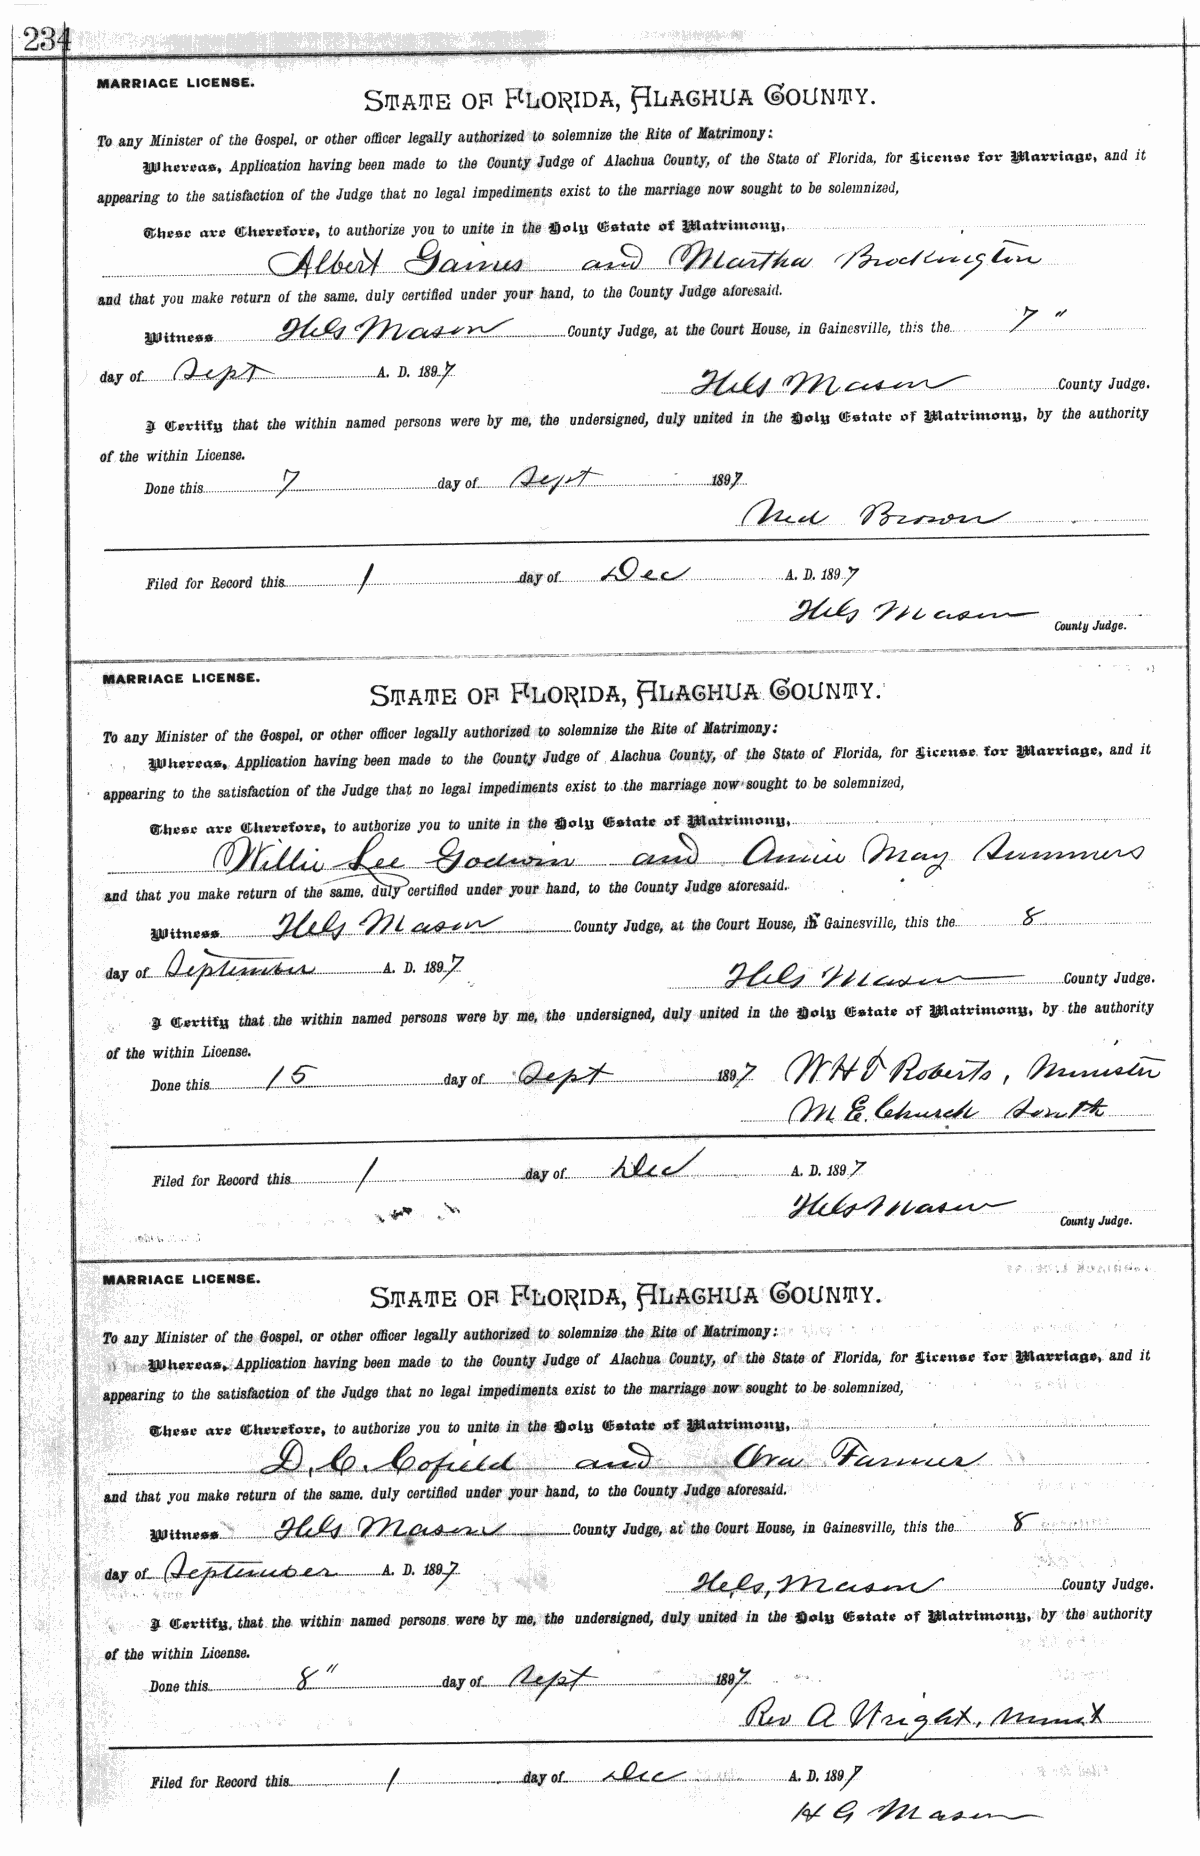 234
MARRIAGE LICENSE.
STATE OF FLORIDA, ALACHUA COUNTY.
To any Minister of the Gospel, or other officer legally authorized to solemnize the Rite of Matrimony:
Whereas, Application having been made to the County Judge of Alachua County, of the State of Florida, for License for Marriage, and it
appearing to the satisfaction of the Judge that no legal impediments exist to the marriage now sought to be solemnized,
These are Therefore, to authorize you to unite in the Holy Estate of Matrimony,
Albert Gaines and Martha Brockington
and that you make return of the same, duly certified under your hand, to the County Judge aforesaid.
Witness Mason County Judge, at the Court House, in Gainesville, this the 7"
day of Sept A. D. 1897
Mason County Judge.
I Certify that the within named persons were by me, the undersigned, duly united in the Holy Estate of Matrimony, by the authority
of the within License.
Done this 7 day of Sept 1897
Ned Brown
Filed for Record this 1 day of Dec A. D. 1897
Mason
County Judge.
MARRIAGE LICENSE.
STATE OF FLORIDA, ALACHUA COUNTY.
To any Minister of the Gospel, or other officer legally authorized to solemnize the Rite of Matrimony:
Whereas, Application having been made to the County Judge of Alachua County, of the State of Florida, for License for Marriage, and it
appearing to the satisfaction of the Judge that no legal impediments exist to the marriage now sought to be solemnized,
These are Therefore, to authorize you to unite in the Holy Estate of Matrimony,
Willie Lee Godwin and Annie May Summers
and that you make return of the same, duly certified under your hand, to the County Judge aforesaid.
Witness Mason County Judge, at the Court House, in Gainesville, this the 8
day of September A. D. 1897
Mason County Judge.
I Certify that the within named persons were by me, the undersigned, duly united in the Holy Estate of Matrimony, by the authority
of the within License.
Done this 15 day of Sept 1897 Roberts, Minister
M. E. Church South
Filed for Record this 1 day of Dec A. D. 1897
Mason
County Judge.
MARRIAGE LICENSE.
STATE OF FLORIDA, ALACHUA COUNTY.
To any Minister of the Gospel, or other officer legally authorized to solemnize the Rite of Matrimony:
Whereas, Application having been made to the County Judge of Alachua County, of the State of Florida, for License for Marriage, and it
appearing to the satisfaction of the Judge that no legal impediments exist to the marriage now sought to be solemnized,
These are Therefore, to authorize you to unite in the Holy Estate of Matrimony,
D. C. Cofield and Ora Farmer
and that you make return of the same, duly certified under your hand, to the County Judge aforesaid.
Witness Mason County Judge, at the Court House, in Gainesville, this the 8
day of September A. D. 1897
Mason County Judge.
I Certify, that the within named persons were by me, the undersigned, duly united in the Holy Estate of Matrimony, by the authority
of the within License.
Done this 8" day of Sept 1897
Rev A Wright,
Filed for Record this 1 day of Dec A. D. 1897
H G Mason